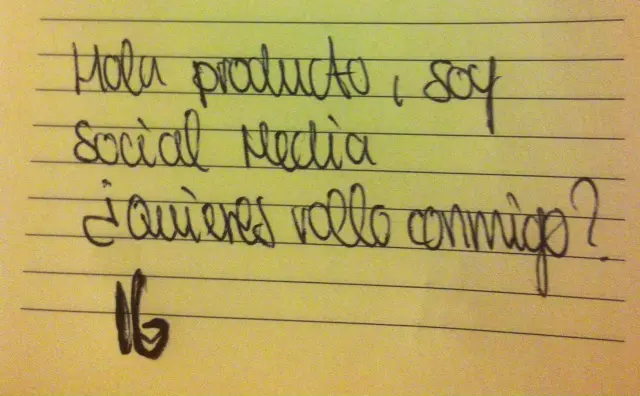 Hola producto, soy
social Media
¿Quieres rollo conmigo?
16